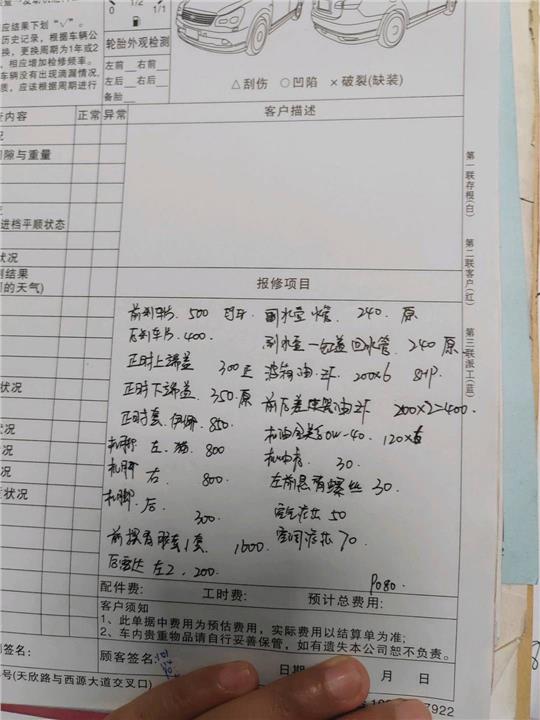 1/2
0 1/1
应结果下划"√"。
历史记录，根据车辆公
换，更换周期为1年或2
，相应增加检修频率。
车辆没有出现滴漏情况，
质，应该根据周期进行
轮胎外观检测
左前 右前
左后 右后
备胎
△刮伤 ○凹陷 ×破裂(缺装)
查内容 正常 异常
客户描述
况
间隙与重量
进档平顺状态
状况
测结果
别的天气)
状况
况
状况
况
况
连状况
第一联存根(白)
第二联客户(红)
第三联派工(蓝)
报修项目
前刹车片 500
后刹车片 400.
正时上端盖 300
正时下端盖 350.原
正时套 850
机脚 左. 800
机脚 右 800
机脚 后 300.
1套 1600.
后雷达 左2. 200.
副水壶水管 240. 原
副水壶一缸盖回水管 240 原
波箱油 ZF 200×6 8HP.
前后差速器油 ZF 200×2=400.
机油 0W-40. 120×
机油格 30.
左前悬有螺丝 30.
空气格 50
空调格 70.
配件费: 工时费: 预计总费用:
客户须知
1、此单据中费用为预估费用，实际费用以结算单为准;
2、车内贵重物品请自行妥善保管，如有遗失本公司恕不负责。
签名: 顾客签名: 日期 月 日
号(天欣路与西源大道交叉口)
7922